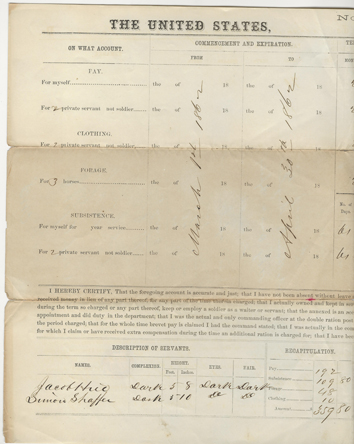 No
THE UNITED STATES,
ON WHAT ACCOUNT.
COMMENCEMENT AND EXPIRATION.
FROM
TO
PAY.
For myself
the of 18
the of 18
For 2 private servant not soldier
the of 18
the of 18
CLOTHING.
For 2 private servant not soldier
the of 18
the of 18
FORAGE.
For 3 horses
the of 18
the of 18
SUBSISTENCE.
For myself for year service
the of 18
the of 18
For 2 private servant not soldier
the of 18
the of 18
March 1st 1862
April 30th 1862
No. of Days
61
61
I HEREBY CERTIFY, That the foregoing account is accurate and just; that I have not been absent without leave
received money in lieu of any part thereof, for any part of the time therein charged; that I actually owned and kept in
during the term so charged or any part thereof, keep or employ a soldier as a waiter or servant; that the annexed is an
appointment and did duty in the department; that I was the actual and only commanding officer at the double ration post
the period charged; that for the whole time brevet pay is claimed I had the command stated; that I was actually in the
for which I claim or have received extra compensation during the time an additional ration is charged for; that I have
DESCRIPTION OF SERVANTS.
RECAPITULATION.
NAMES.
COMPLEXION.
HEIGHT.
EYES.
HAIR.
Feet. Inches.
Jacob
Dark 5 8 Dark Dark
Simon Shaffer
Dark 5 10 do do
Pay
192
Subsistence
109 80
Forage
Clothing
Amount